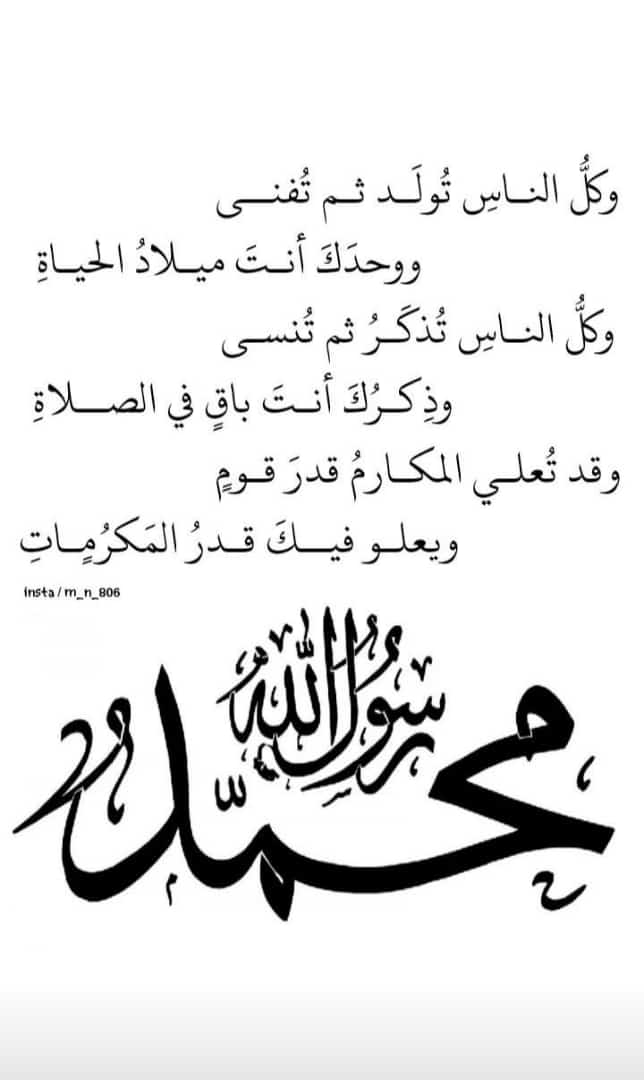 وكلُّ الناسِ تُولَد ثم تُفنى
ووحدَكَ أنتَ ميلادُ الحياةِ
وكلُّ الناسِ تُذكَرُ ثم تُنسى
وذِكرُكَ أنتَ باقٍ في الصلاةِ
وقد تُعلي المكارمُ قدرَ قومٍ
ويعلو فيكَ قدرُ المَكرُمٍاتِ
insta/m_n_806
محمد رسول الله